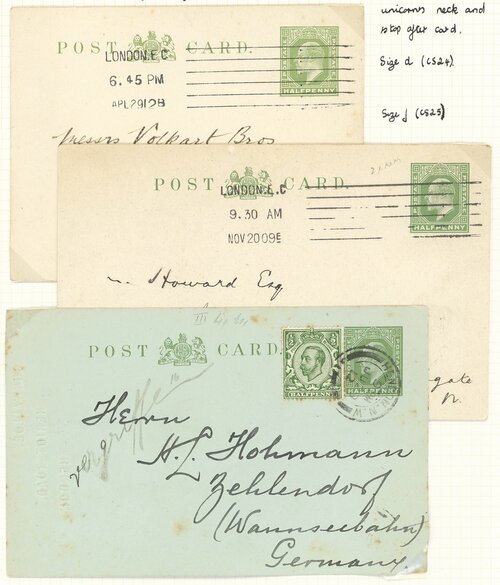 unicorns neck and
stop after card.
Size d (CS24)
Size f (CS25)
POST CARD.
LONDON.E.C
6.45 PM
APL 29 12B
HALFPENNY
Messrs Volkart Bros
POST CARD.
LONDON.E.C
9.30 AM
NOV 20 09E
HALFPENNY
Howard Esq
gate
N.
POST CARD.
HALFPENNY
HALFPENNY
vergriffen
Herrn
A. L. Hohmann
Zehlendorf
(Wannseebahn)
Germany